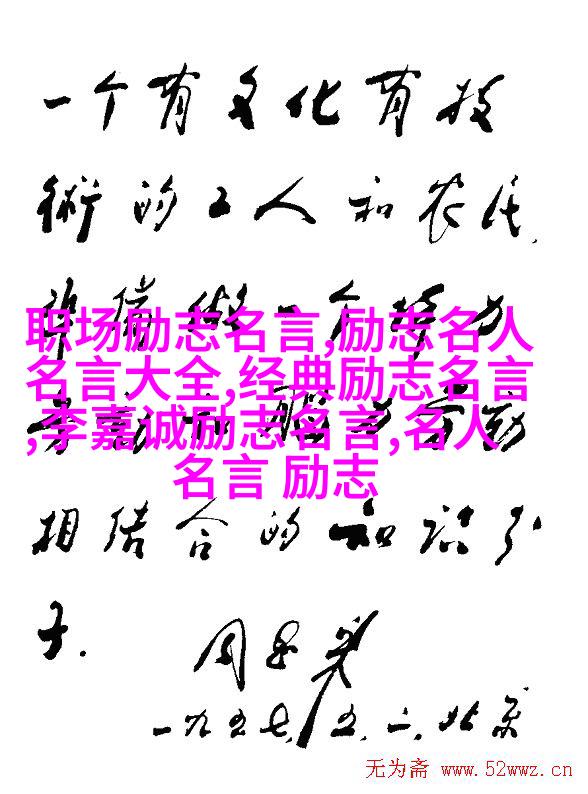 一个有文化有技
術的工人和农民,
准备做一个体力
劳动和脑力劳动
相结合的知识分
子.
周恩来
一九五七,五,一,北京
职场励志名言,励志名人
名言大全,经典励志名言
,李嘉诚励志名言,名人
名言 励志
无为斋 www.52wwz.cn